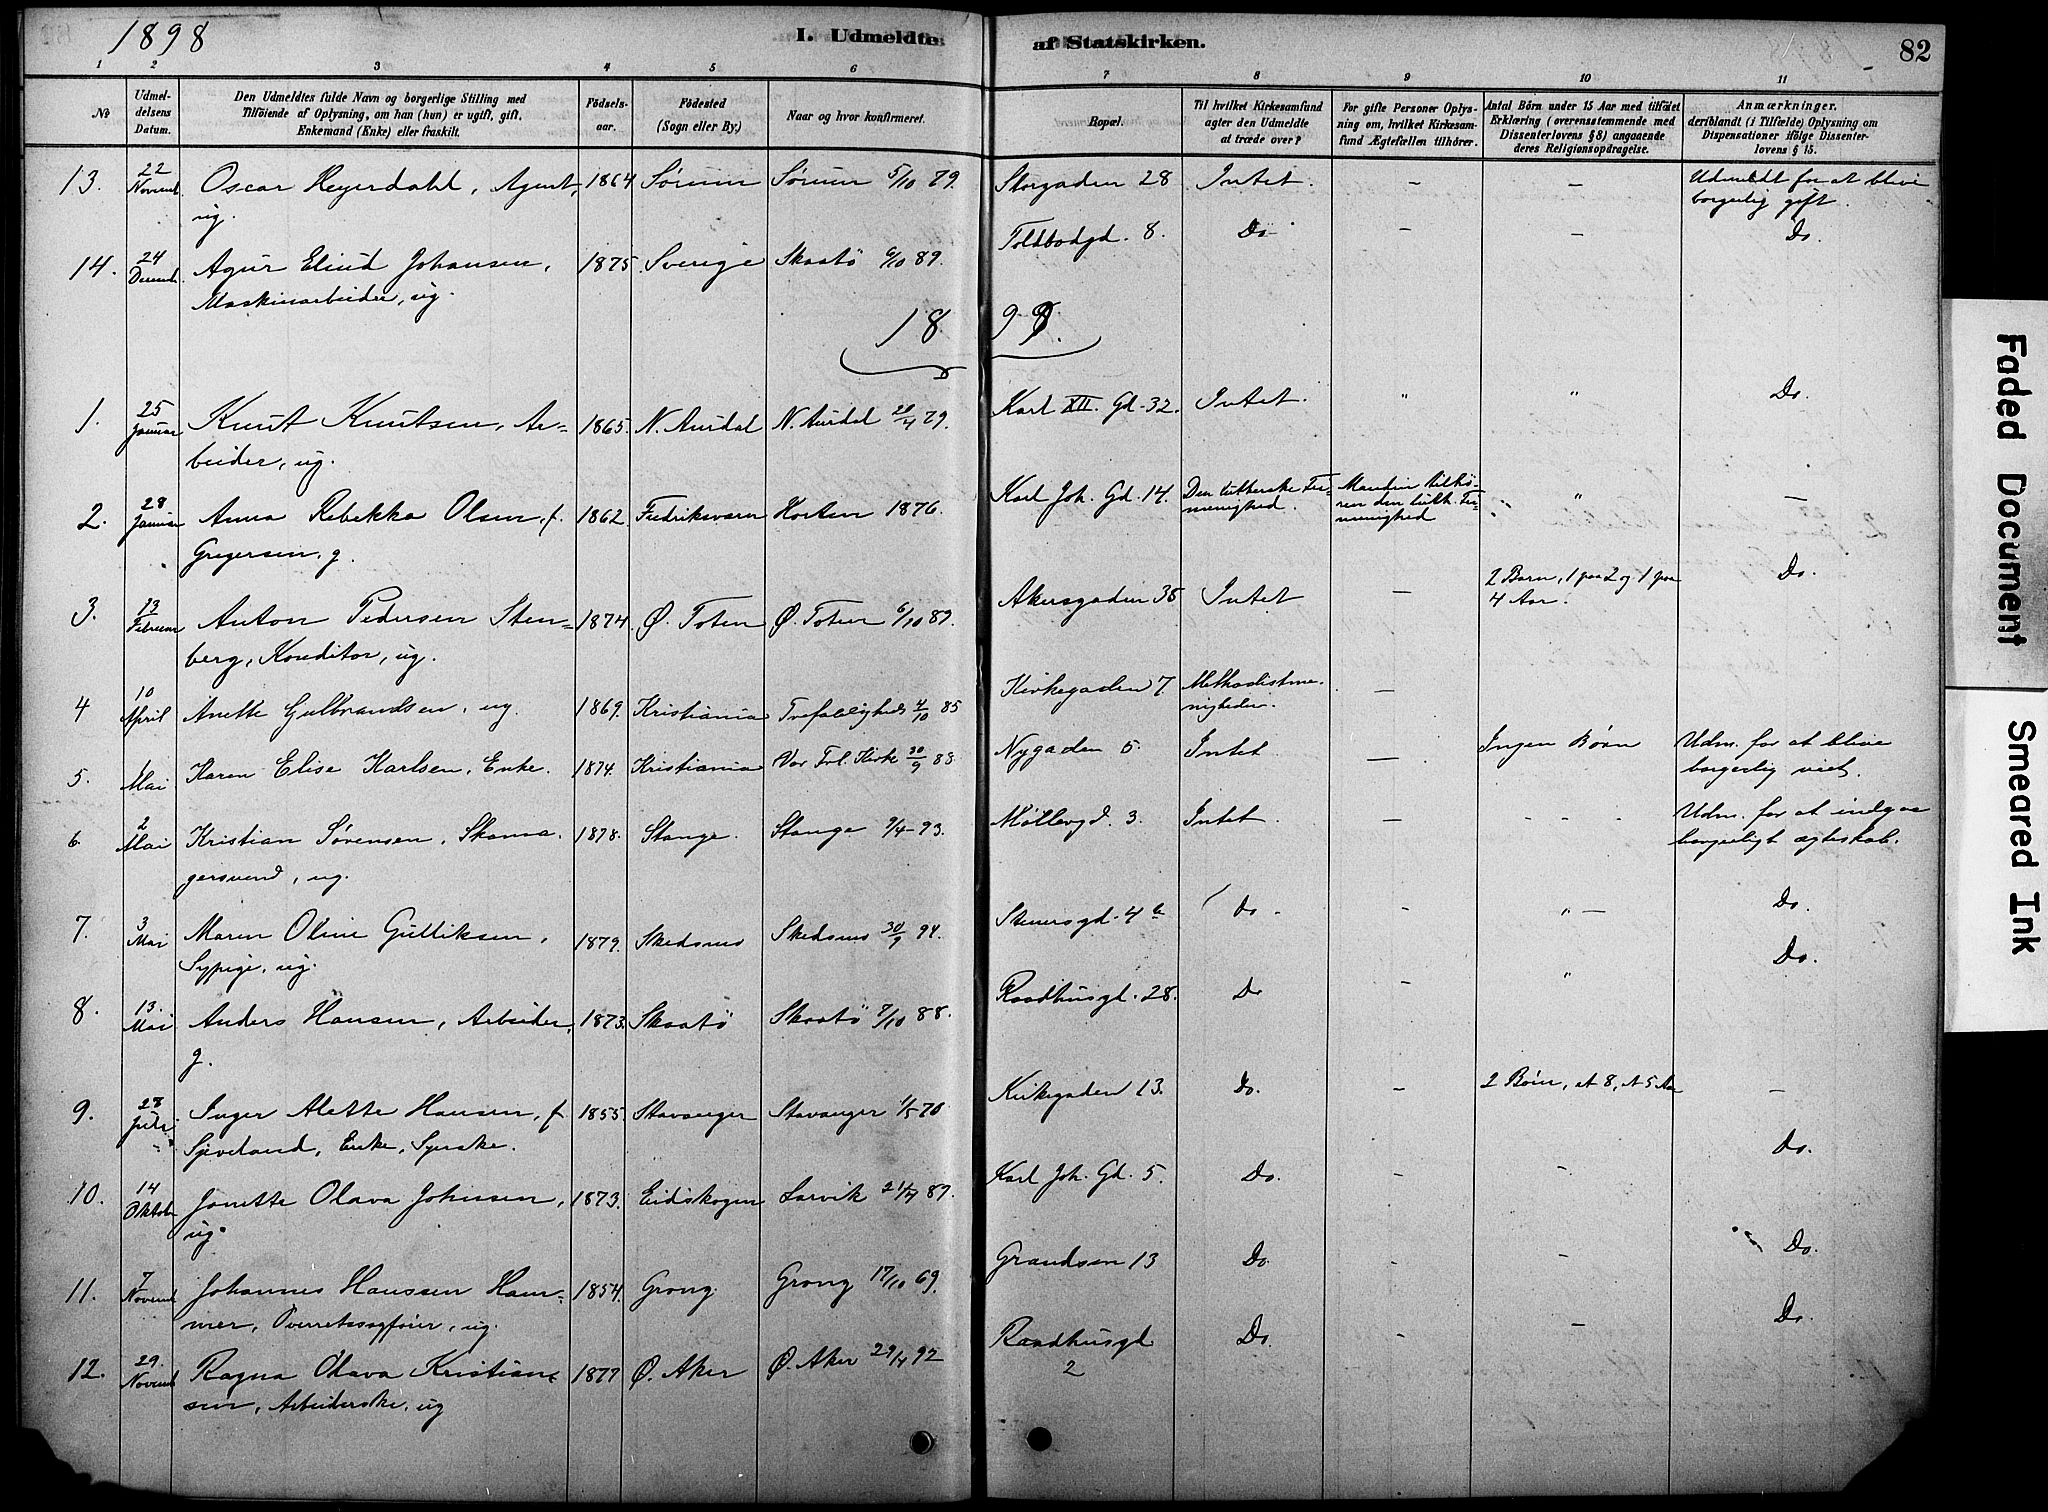 1898
I. Udmeldte af Statskirken.
82
1 2 3 4 5 6 7 8 9 10 11
No
Udmel-
delsens
Datum.
Den Udmeldtes fulde Navn og borgerlige Stilling med
Tilföiende af Oplysning, om han (hun) er ugift, gift,
Enkemand (Enke) eller fraskilt.
Födsels-
aar.
Födested
(Sogn eller By.)
Naar og hvor konfirmeret.
Bopæl.
Til hvilket Kirkesamfund
agter den Udmeldte
at træde over?
For gifte Personer Oplys-
ning om, hvilket Kirkesam-
fund Ægtefællen tilhörer.
Antal Börn under 15 Aar med tilföiet
Erklæring (overensstemmende med
Dissenterlovens §8) angaaende
deres Religionsopdragelse.
Anmærkninger,
deriblandt (i Tilfælde) Oplysning om
Dispensationer ifölge Dissenter-
lovens § 15.
13. 22 Novemb. Oscar Heyerdahl, Agent, 1864 Sørum Sørum 5/10 79. Storgaden 28 Intet. - - Udmeldt for at blive
ug. borgerlig gift.
14. 24 Decemb. Agur Eliud Johansen, 1875. Sverige Skaatö 6/10 89. Toldbodgd. 8. Do - - - Do.
Maskinarbeider, ug.
18 99.
1. 25 Januar Knut Knutsen, Ar- 1865. N. Aurdal N. Aurdal 20/4 79. Karl XII. Gd. 32. Intet. " " Do.
beider, ug.
2. 28 Januar Anna Rebekka Olsen, f. 1862. Fredriksværn Horten 1876. Karl Joh. Gd. 14. Den lutherske Fri- Manden tilhö- " -
Gregersen, g. menighed. rer den luth. Fri-
menighed
3. 13 Februar Anton Pedersen Sten- 1874. Ø. Toten Ø. Toten 6/10 89. Akersgaden 35 Intet - 2 Barn, 1 paa 2 og 1 paa Do.
berg, Konditor, ug. 4 Aar.
4 10 April Anette Gulbrandsen, ug. 1869. Kristiania Trefoldigheds 4/10 85 Kirkegaden 7. Methodistme- -
nigheden.
5. 1 Mai Karen Elise Karlsen, Enke. 1874. Kristiania Vor Frl. Kirke 30/9 88 Nygaden 5. Intet - Ingen Børn Udm. for at blive
borgerlig viet.
6. 2 Mai Kristian Sørensen, Skoma- 1878. Stange. Stange 9/4-93. Møllergd. 3. Intet. - - - - Udm. for at indgaa
gersvend, ug. borgerligt ægteskab.
7. 3 Mai Maren Oline Gulliksen, 1879. Skedsmo Skedsmo 30/9 94. Stenersgd. 4 b Do - - " - Do.
Sypige, ug.
8. 13. Mai Anders Hansen, Arbeider, 1873. Skaatö Skaatö 7/10 88. Raadhusgd. 28. Do - " Do.
g.
9. 28 Juli Inger Alette Hansen, f. 1855. Stavanger Stavanger 1/5 70 Kirkegaden 13. Do. - 2 Börn, et 8, et 5 Aar -
Sjoveland, Enke, Syerske.
10. 14 Oktob. Janette Olava Johnsen, 1873. Eidskogen Larvik 21/4 89. Karl Joh. Gd. 5. Do. - - Do.
ug.
11. 7 Novemb Johannes Hanssen Ham- 1854. Grong. Grong 17/10 69. Grændsen 13 Do. - - Do.
mer, Overretssagfører, ug.
12. 29. Novemb Ragna Olava Kristian- 1877 Ø. Aker Ø. Aker 24/4 92 Raadhusgd Do. - - Do.
sen, Arbeiderske, ug 2
Faded Document
Smeared Ink